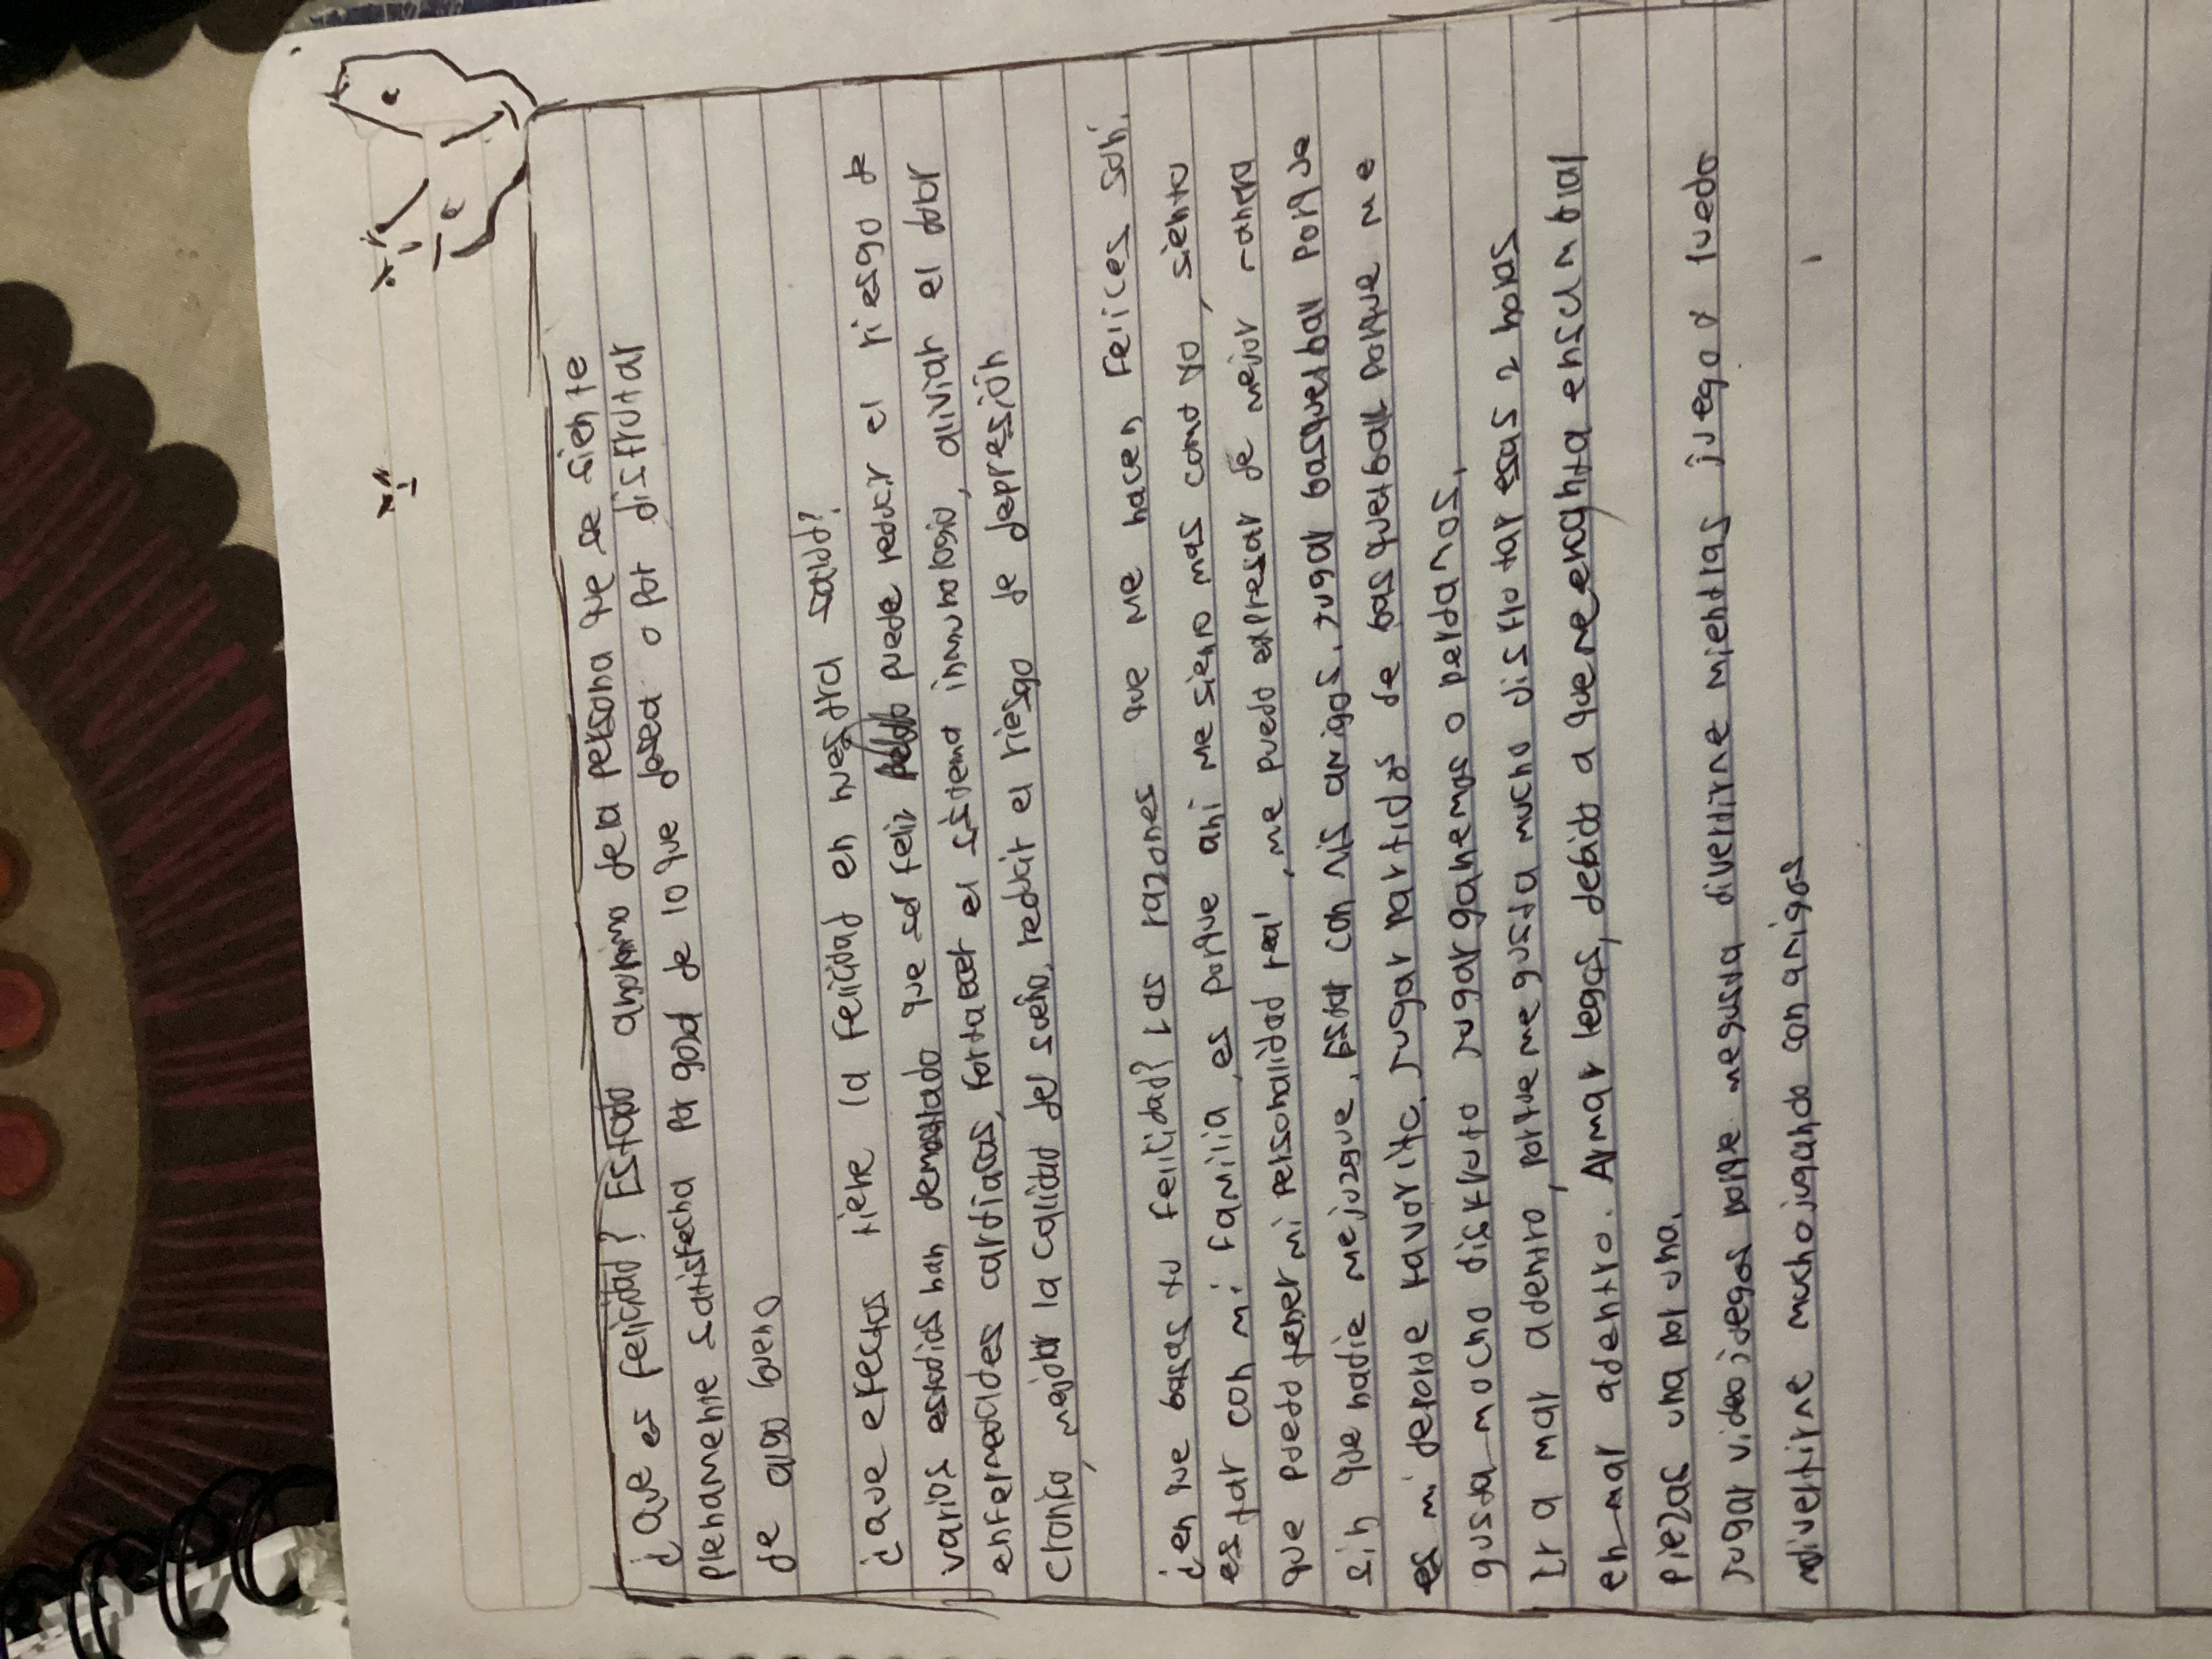 ¿Que es felicidad? Estado anonimo de la persona que se siente
plenamente satisfecha por gozd de lo que desea o por disfrutar
de algo bueno
¿Que efectos tiene la felicidad en nuestra salud?
varios estudios han demostrado que ser feliz puede reducir el riesgo de
enfermedades cardiacas, fortalecer el sistema inmunologio, aliviar el dolor
cronico, mejorar la calidad del sueño, reducir el riesgo de depresión
¿en que basas tu felicidad? Las razones que me hacen felices són.
estar con mi familia, es porque ahi me siento mas como yo, siento
que puedo tener mi personalidad real, me puedo expresar de mejor manera
sin que nadie me juzgue. Estar con mis amigos. Jugar basquetball porque
es mi deporte favorito. Jugar partidos de basquetball porque me
gusta mucho disfruto jugar ganemos o perdamos.
Ir a mar adentro, porque me gusta mucho disfrutar esas 2 horas
en mar adentro. Armar legos, debido a que me encanta ensamblar
piezas una por una.
Jugar videojegos porque me gusta divertirme mientras juego y luedo
divertirme mucho jugando con amigos